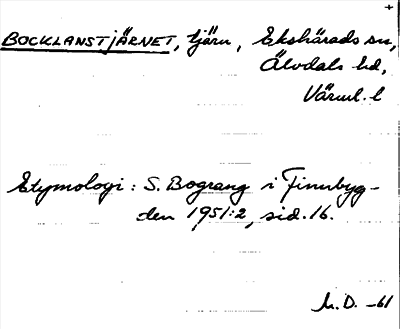 +
BOCKLANSTJÄRNET, tjärn, Ekshärads sn,
Älvdals hd,
Värml. l
Etymologi: S. Bograng i Finnbyg-
den 1951:2, sid. 16.
M.D. -61